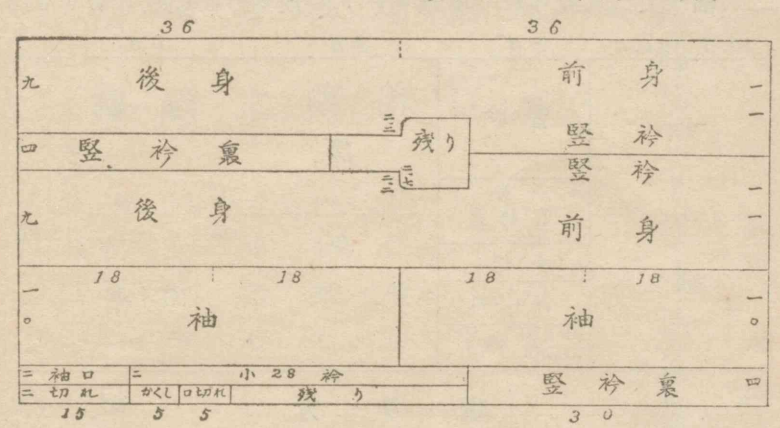 36 36
九 後身 前身 一一
二.三 残り 竪衿
四 竪衿裏 竪衿
二.二 二.七
九 後身 前身 一一
18 18 18 18
一〇 袖 袖 一〇
二 袖口 二 小28衿 竪衿裏 四
二 切れ かくし 口切れ 残り
15 5 5 30